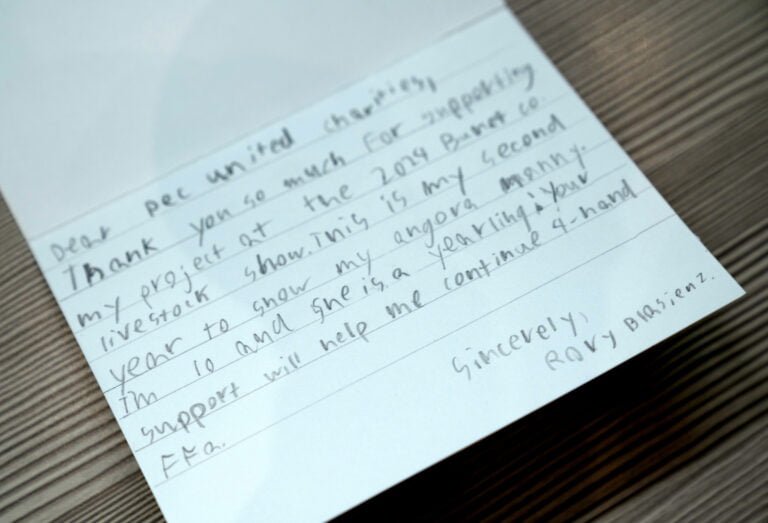 Dear pec united charities,
Thank you so much For supporting
my project at the 2024 Burnet co
livestock show. This is my second
year to show my angora nanny.
I'm 10 and she is a yearling. Your
support will help me continue 4-hand
FFa.
Sincerely,
Rory Blasienz.